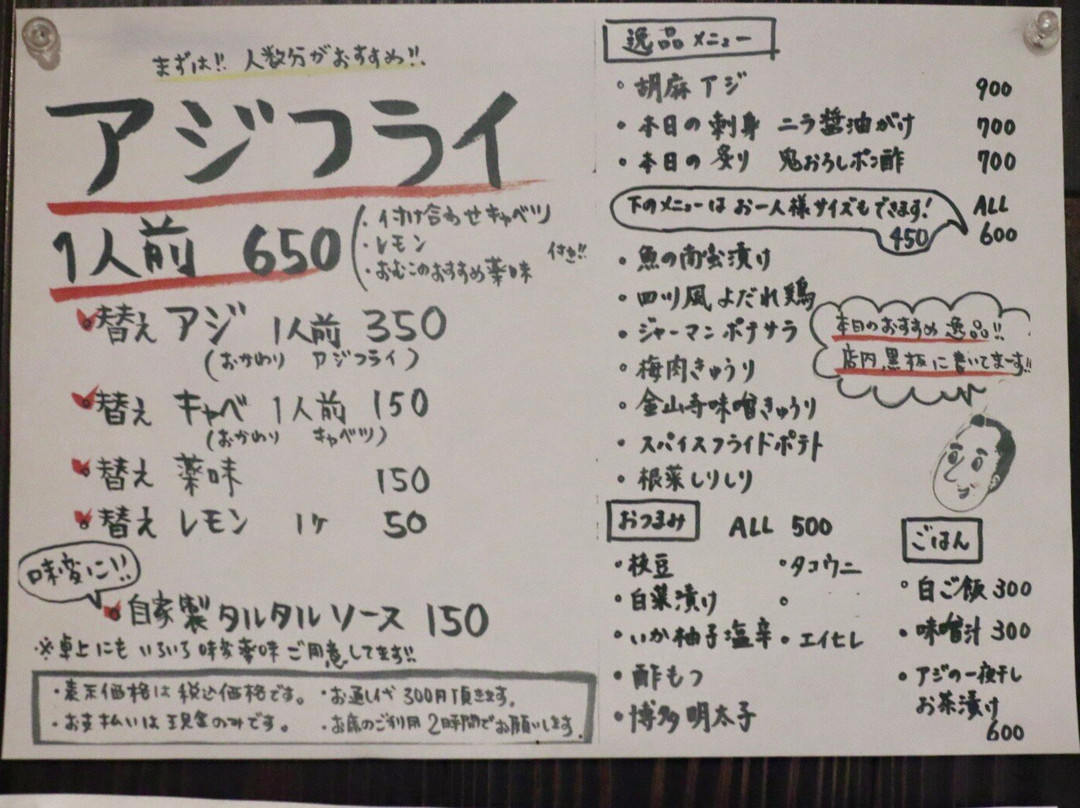 まずは!! 人数分がおすすめ!!
アジフライ
1人前 650
・付け合わせキャベツ
・レモン
・おむこのおすすめ薬味
付き!!
替え アジ 1人前 350
(おかわり アジフライ)
替え キャベ 1人前 150
(おかわり キャベツ)
替え 薬味 150
替え レモン 1ケ 50
味変に!!
自家製 タルタルソース 150
※卓上にも いろいろ味変薬味ご用意してます!!
・表示価格は税込価格です。
・お通し代 300円頂きます。
・お支払いは現金のみです。
・お席のご利用 2時間でお願いします。
逸品メニュー
・胡麻アジ 900
・本日の刺身 ニラ醤油がけ 700
・本日の炙り 鬼おろしポン酢 700
下のメニューはお一人様サイズもできます!
450
ALL
600
・魚の南蛮漬け
・四川風よだれ鶏
・ジャーマンポテサラ
・梅肉きゅうり
・金山寺味噌きゅうり
・スパイスフライドポテト
・根菜しりしり
本日のおすすめ逸品!!
店内黒板に書いてまーす!!
おつまみ ALL 500
・枝豆
・白菜漬け
・いか柚子塩辛
・酢もつ
・博多明太子
・タコウニ
・エイヒレ
ごはん
・白ご飯 300
・味噌汁 300
・アジの一夜干し
お茶漬け
600